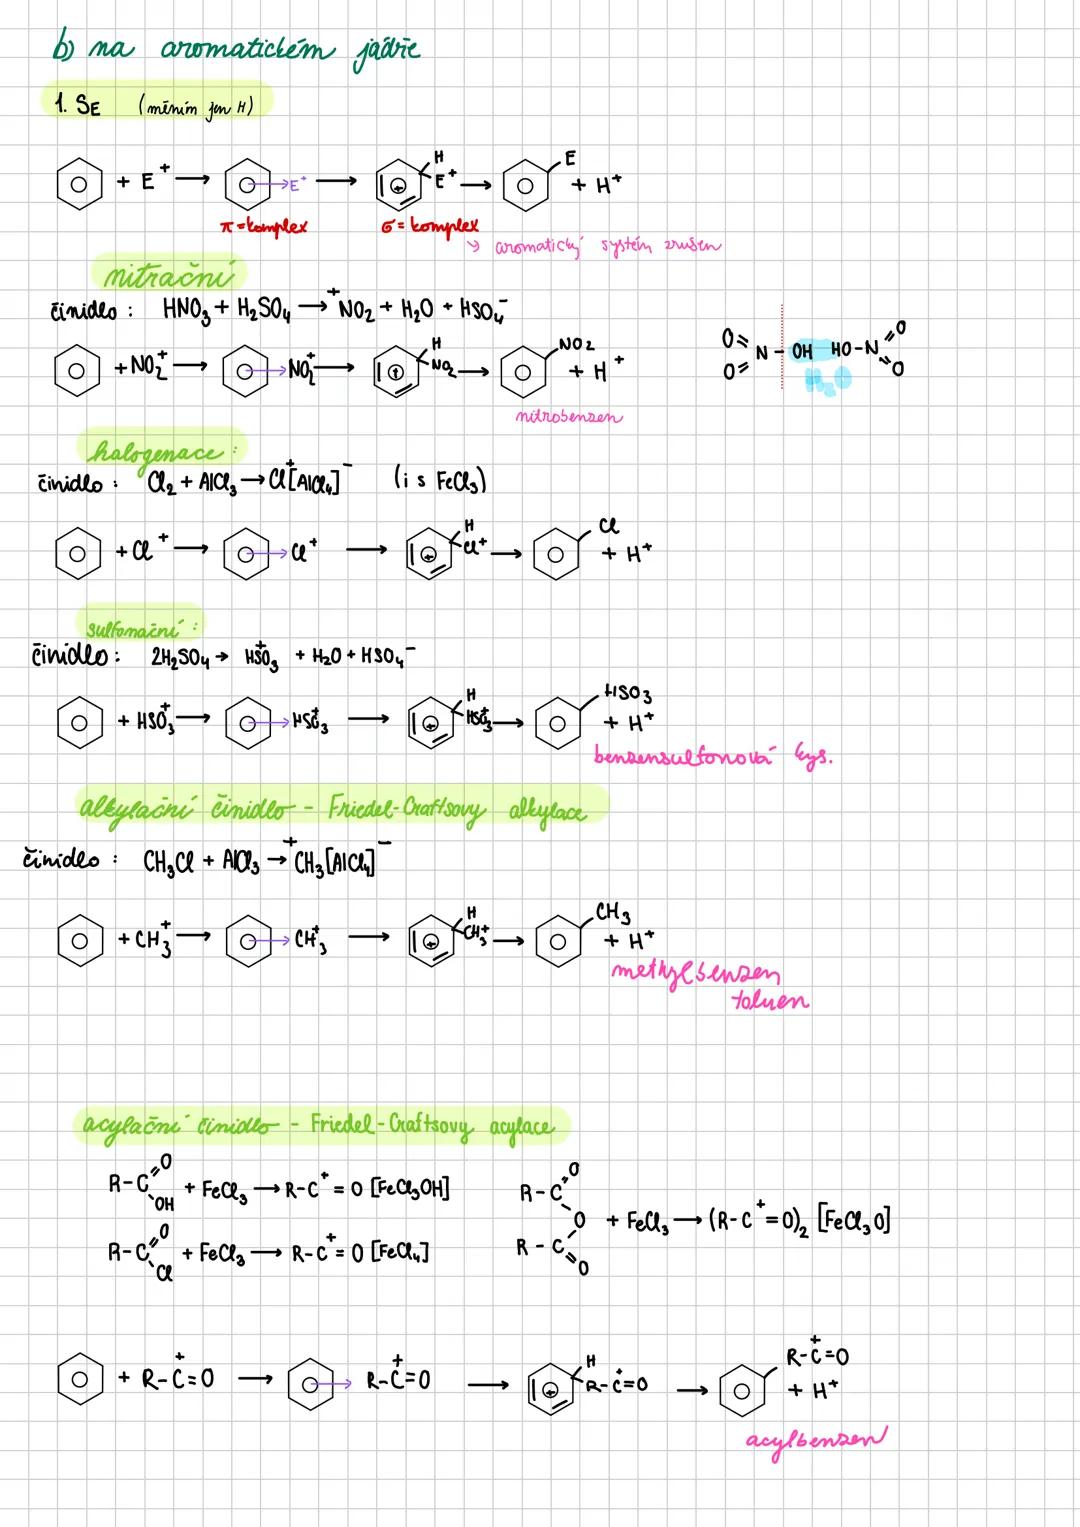 b) na aromatickém jádře
1. SE (měním jen H)
+ E⁺ → →E⁺ → H E⁺ → E + H⁺
π = komplex σ = komplex
↘ aromatický systém zrušen
nitrační
činidlo : HNO₃ + H₂SO₄ → ⁺NO₂ + H₂O + HSO₄⁻
+ NO₂⁺ → →NO₂⁺ → H NO₂ → NO₂ + H⁺
nitrobenzen
O=N(=O)-OH HO-N(=O)=O
H₂O
halogenace :
činidlo : Cl₂ + AlCl₃ → Cl⁺[AlCl₄]⁻ (i s FeCl₃)
+ Cl⁺ → →Cl⁺ → H Cl⁺ → Cl + H⁺
sulfonační :
činidlo : 2H₂SO₄ → HSO₃⁺ + H₂O + HSO₄⁻
+ HSO₃⁺ → →HSO₃⁺ → H HSO₃⁺ → HSO₃ + H⁺
benzensulfonová kys.
alkylační činidlo - Friedel-Craftsovy alkylace
činidlo : CH₃Cl + AlCl₃ → ⁺CH₃[AlCl₄]⁻
+ CH₃⁺ → →CH₃⁺ → H CH₃⁺ → CH₃ + H⁺
methylbenzen
toluen
acylační činidlo - Friedel-Craftsovy acylace
R-C(=O)OH + FeCl₃ → R-C⁺=O [FeCl₃OH]
R-C(=O)Cl + FeCl₃ → R-C⁺=O [FeCl₄]
R-C(=O)-O-C(=O)-R + FeCl₃ → (R-C⁺=O)₂ [FeCl₃O]
+ R-C⁺=O → → R-C⁺=O → H R-C⁺=O → R-C⁺=O + H⁺
acylbenzen